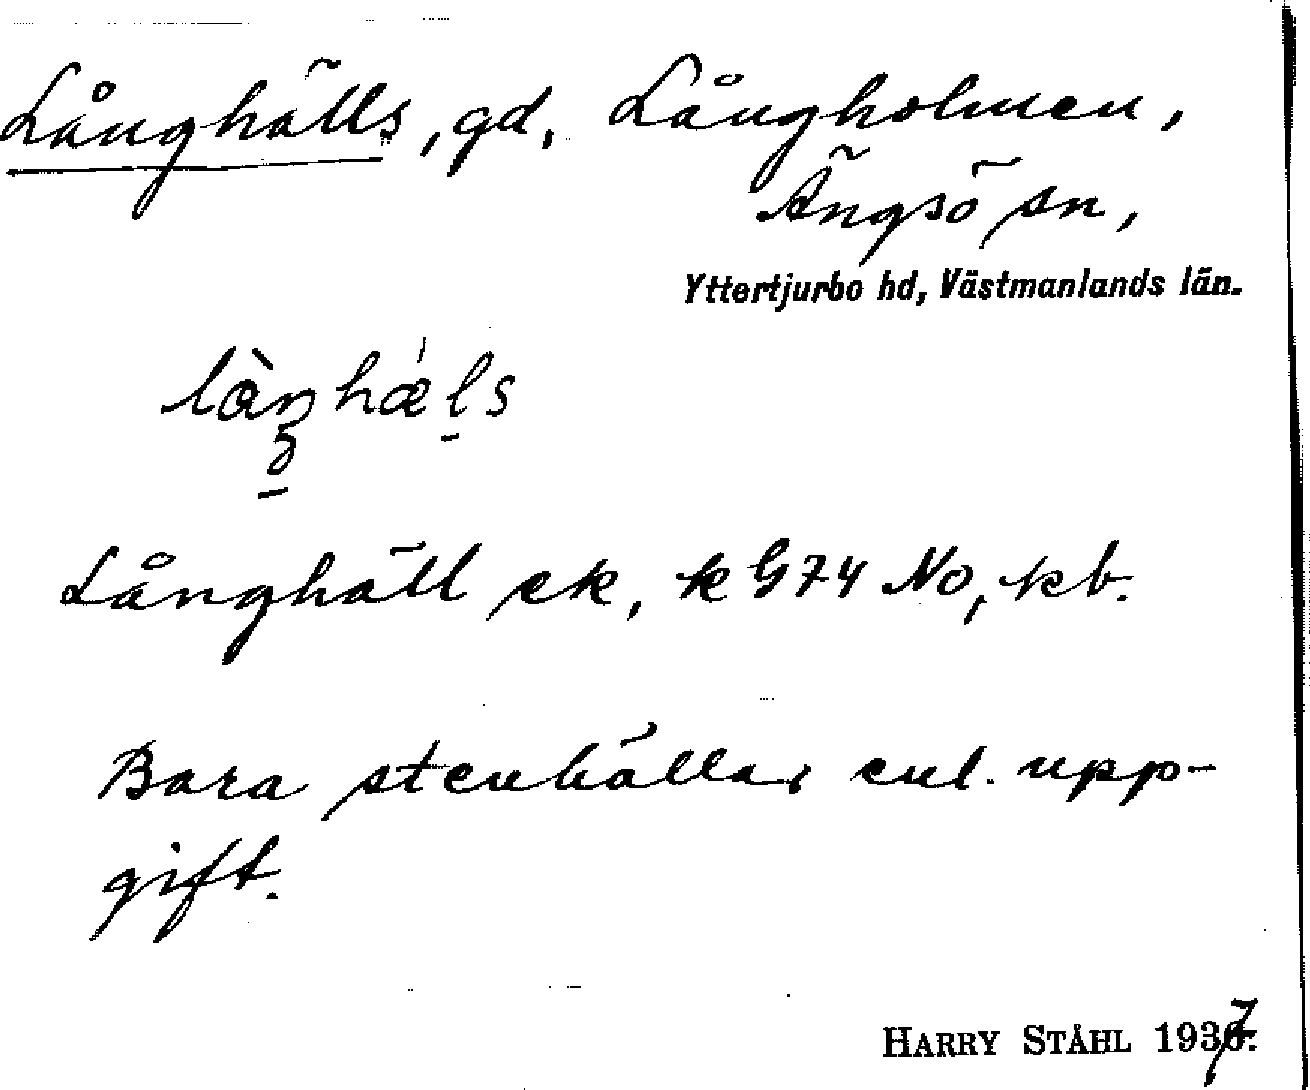 Långhälls, gd, Långholmen,
Ängsö sn,
Yttertjurbo hd, Västmanlands län.
Långhäll ek, k G74 No, kb.
Bara stenhällar enl. upp-
gift.
HARRY STÅHL 1937.